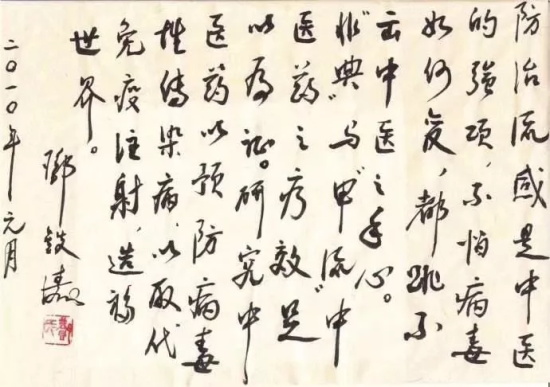 防治流感是中医
的强项,不怕病毒
如何变,都跳不
出中医之手心。
“非典”与“甲流”中
医药之疗效,足
以为证。研究中
医药以预防病毒
性传染病,以取代
免疫注射,造福
世界。
邓铁涛
二〇一〇年元月